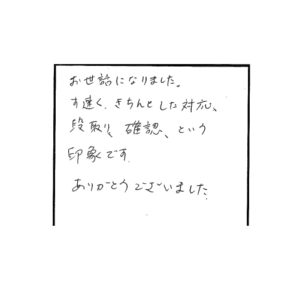 お世話になりました。
す速く、きちんとした対応、
段取り、確認、という
印象です.
ありがとうございました.